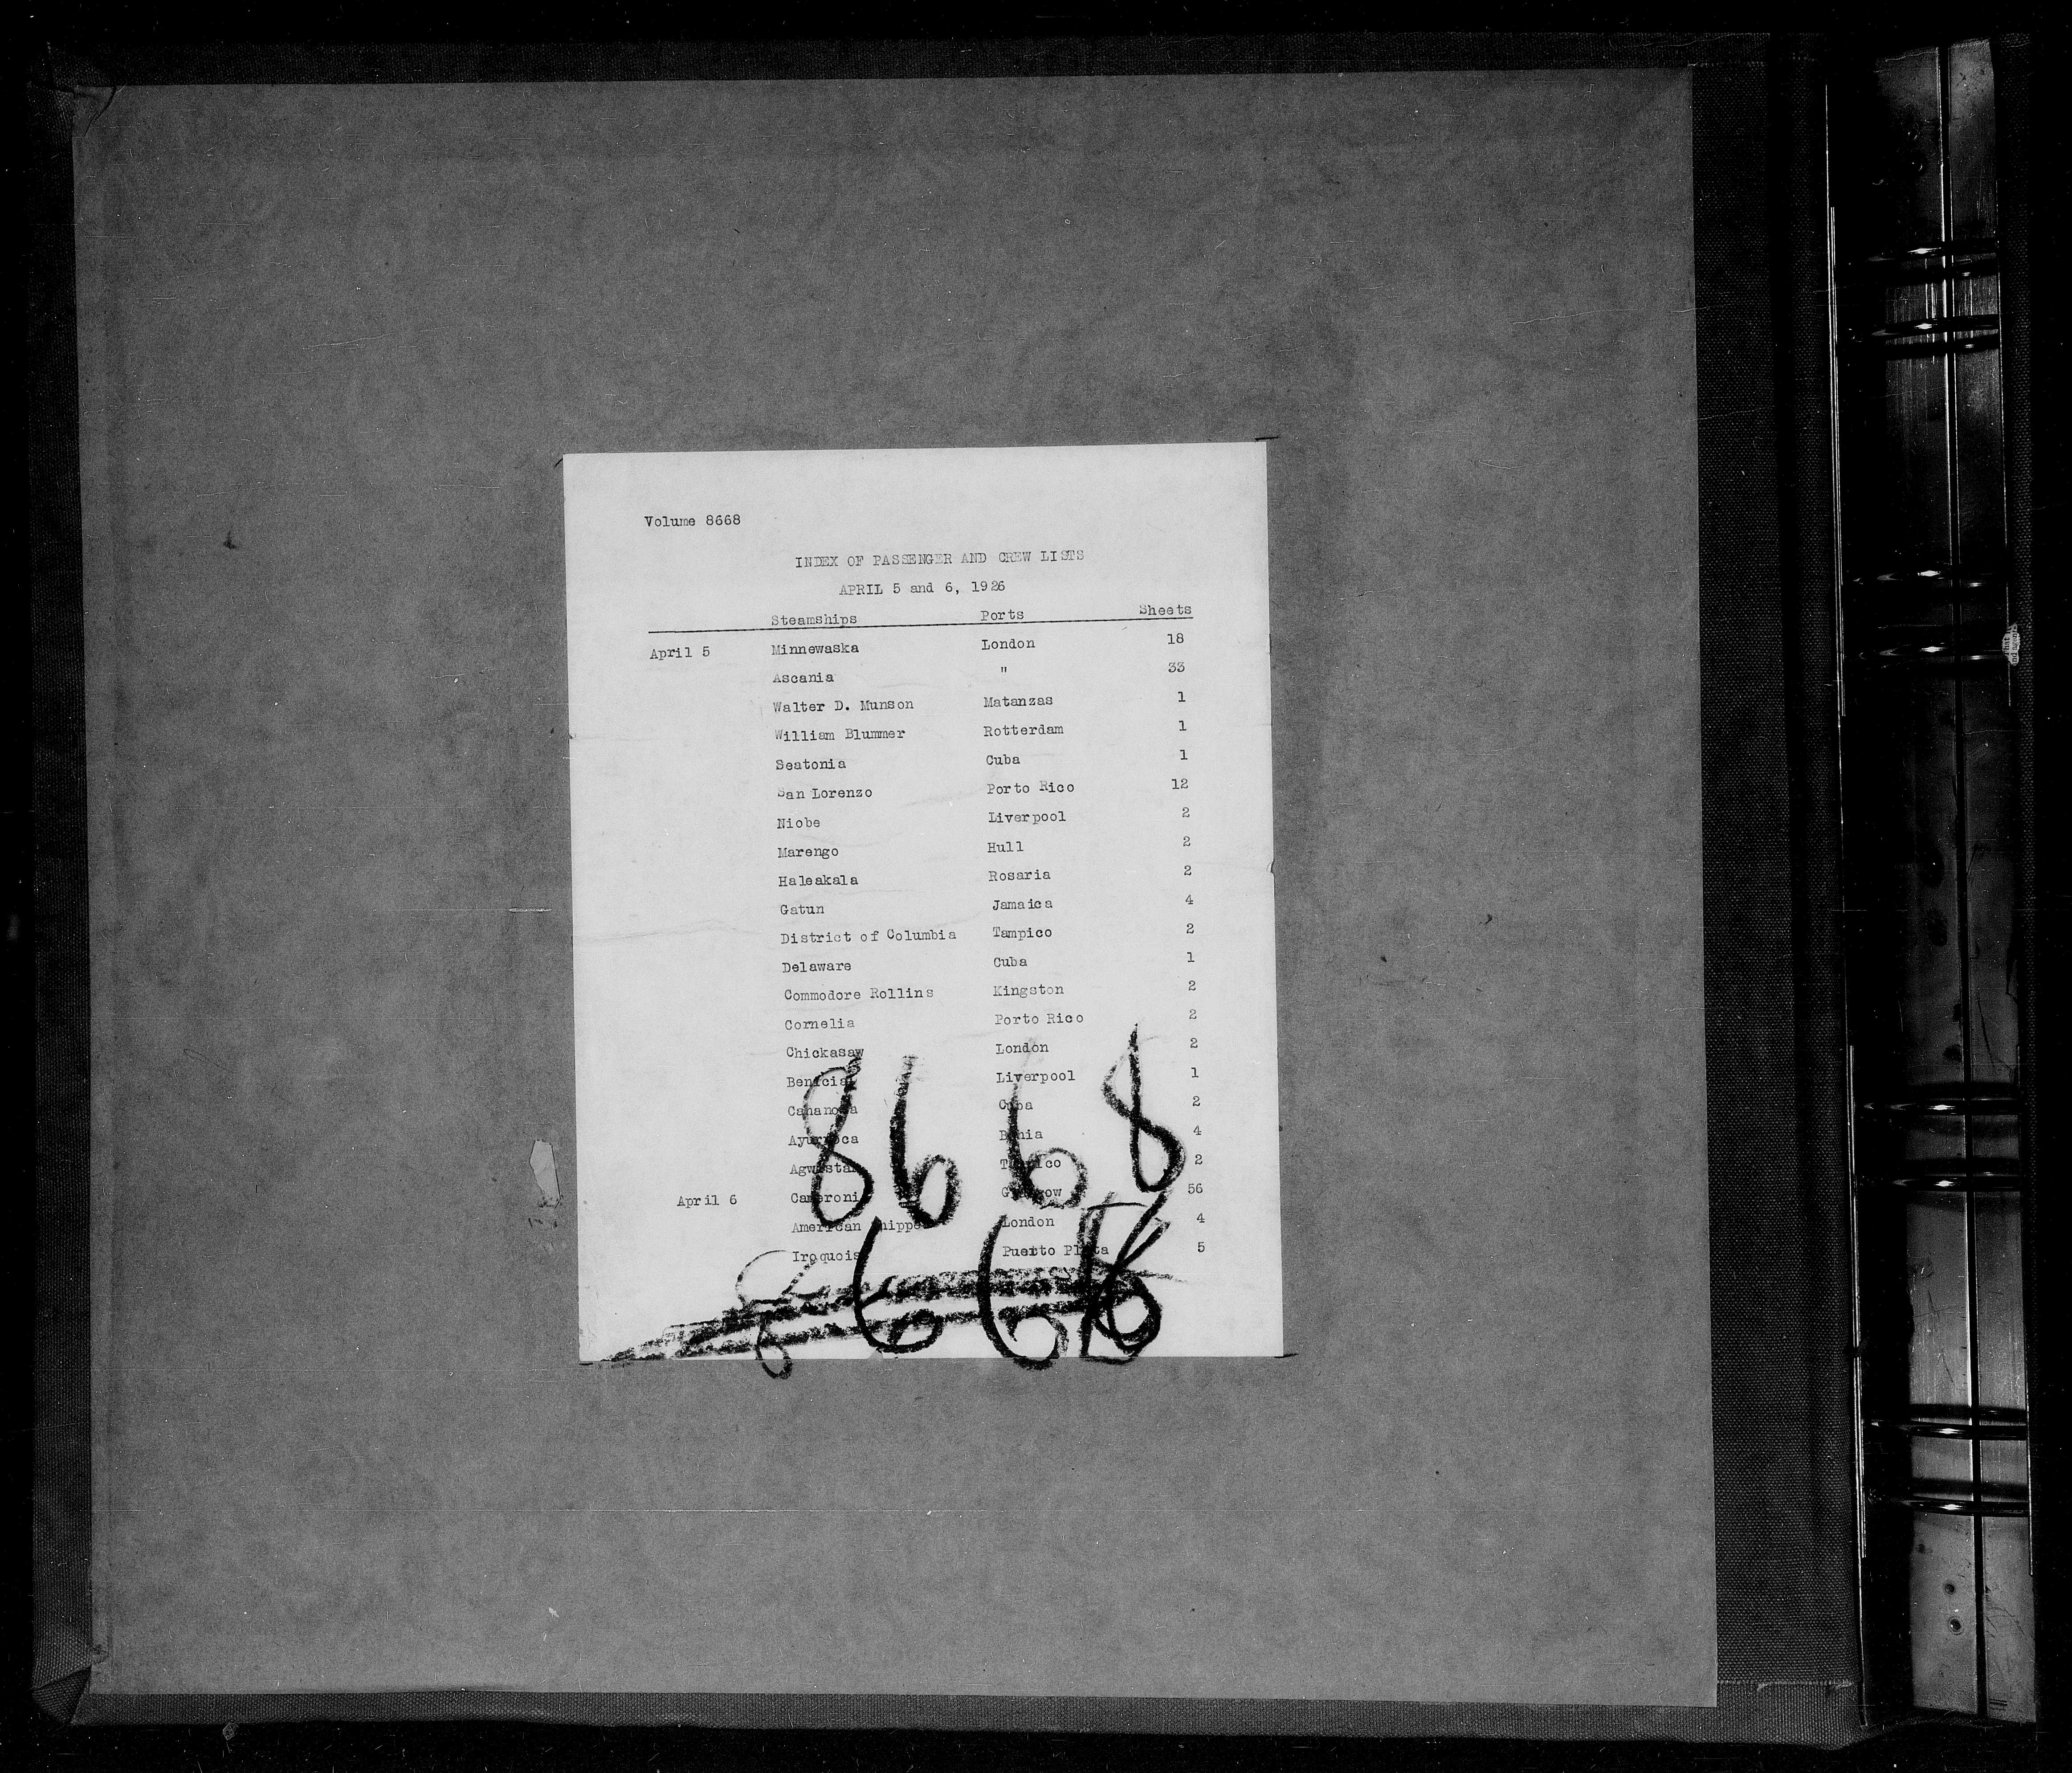 Volume 8668
INDEX OF PASSENGER AND CREW LISTS
APRIL 5 and 6, 1926
Steamships Ports Sheets
April 5 Minnewaska London 18
Ascania " 33
Walter D. Munson Matanzas 1
William Blummer Rotterdam 1
Seatonia Cuba 1
San Lorenzo Porto Rico 12
Niobe Liverpool 2
Marengo Hull 2
Haleakala Rosaria 2
Gatun Jamaica 4
District of Columbia Tampico 2
Delaware Cuba 1
Commodore Rollins Kingston 2
Cornelia Porto Rico 2
Chickasaw London 2
Benicia Liverpool 1
Cuba 2
Bahia 4
Tampico 2
April 6 Glasgow 56
American Shipper London 4
Iroquois Puerto Plata 5
8668